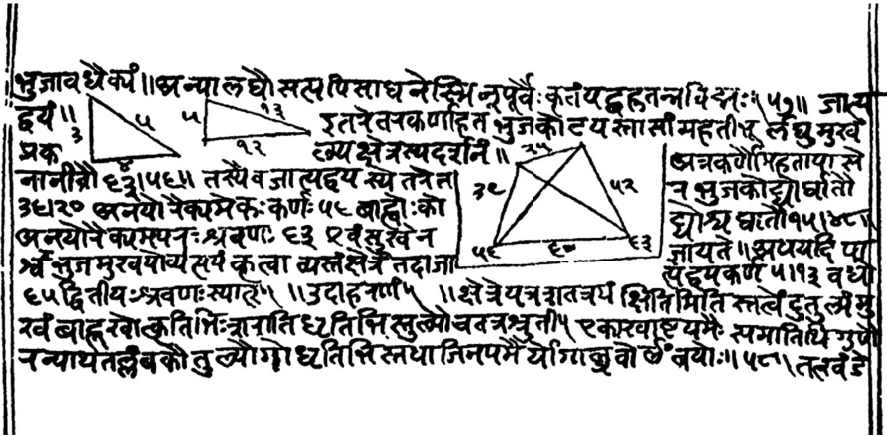 भुजावधैक्यं॥ अन्या लघौ सत्यपि साधनेस्मिन्पूर्वैः कृतं यद्गुरु तन्न विद्मः॥५७॥ जात्य
द्वयं॥ ३ ५ ५ १३ इतरेतरकर्णाहत भुजकोटय स्तासां महती भू र्लघु मुखं
प्रक ४ १२ क्षेत्रस्यदर्शनं॥ २५ अत्रकर्णौमिहताया स्ते
नानीतौ ६३।५६॥ तस्यैव जात्यद्वय स्ये तरेत ३९ ५२ र भुजकोट्योर्घातौ
३६।२० अनयो रैक्यमेकः कर्णः ५६ बाह्वोः को द्योश्च घातौ १५।४८॥
अनयोरैक्यमपरः श्रवणः ६३ एवंसुखेन ५६ ६० ६३ जायते॥ अथयदि पा
र्श्व भुजमुखयोर्व्यत्ययं कृत्वा न्यस्तंक्षेत्रं तदाजा त्यद्वयकर्ण ५।१३ वधो
६५ द्वितीयः श्रवणःस्यात्॥ ॥उदाहरणं॥ ॥क्षेत्रे यत्र शतत्रयं क्षितिमिति स्तत्वेंदुतुल्यंमु
खं बाहू खोत्कृतिभिः शरातिधृतिभि स्तुल्यौ च तत्र श्रुती। एकाखाष्टयमैः समातिथिगुणै
रन्याथ तल्लंबकौ तुल्यौ गोधृतिभि स्तथा जिनयमैर्योगाच्छ्रवोर्लंबयोः॥५८॥ तत्खंडे